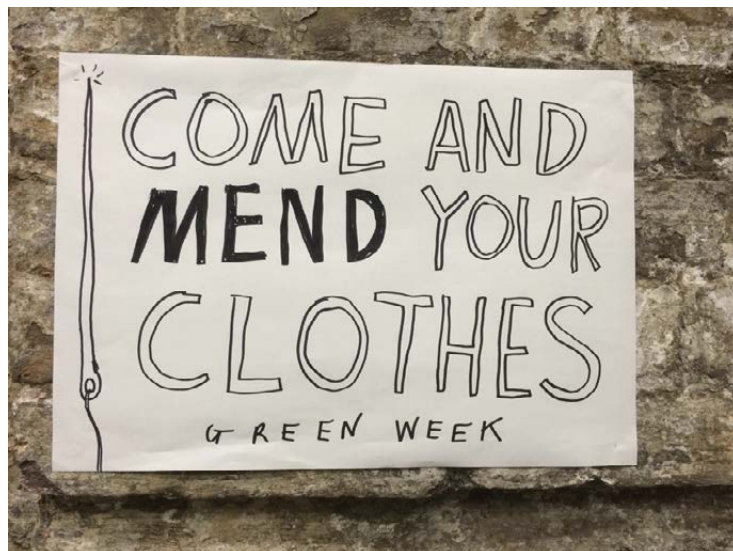 COME AND
MEND YOUR
CLOTHES
GREEN WEEK